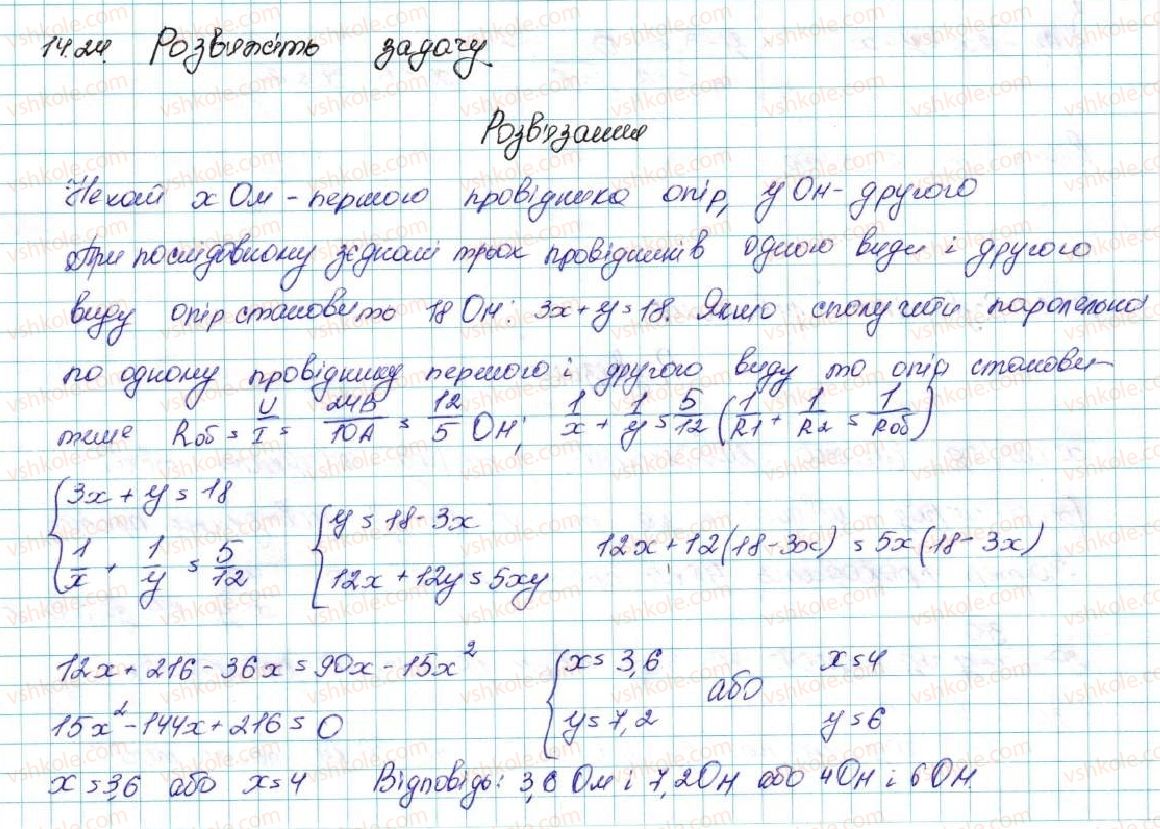 14.24. Розв'яжіть задачу
Розв'язання
Нехай x Ом - першого провідника опір, y Ом - другого
При послідовному зєднані трьох провідників одного виду і другого
виду опір становить 18 Ом: 3x + y = 18. Якщо сполучити паралельно
по одному провіднику першого і другого виду то опір станови-
тиме Rоб = U/I = 24В/10А = 12/5 Ом; 1/x + 1/y = 5/12 (1/R1 + 1/R2 = 1/Rоб)
{ 3x + y = 18 { y = 18 - 3x 12x + 12(18 - 3x) = 5x(18 - 3x)
1/x + 1/y = 5/12 12x + 12y = 5xy
12x + 216 - 36x = 90x - 15x² { x = 3,6 або x = 4
15x² - 144x + 216 = 0 y = 7,2 y = 6
x = 3,6 або x = 4 Відповідь: 3,6 Ом і 7,2 Ом або 4 Ом і 6 Ом.
vshkole.com